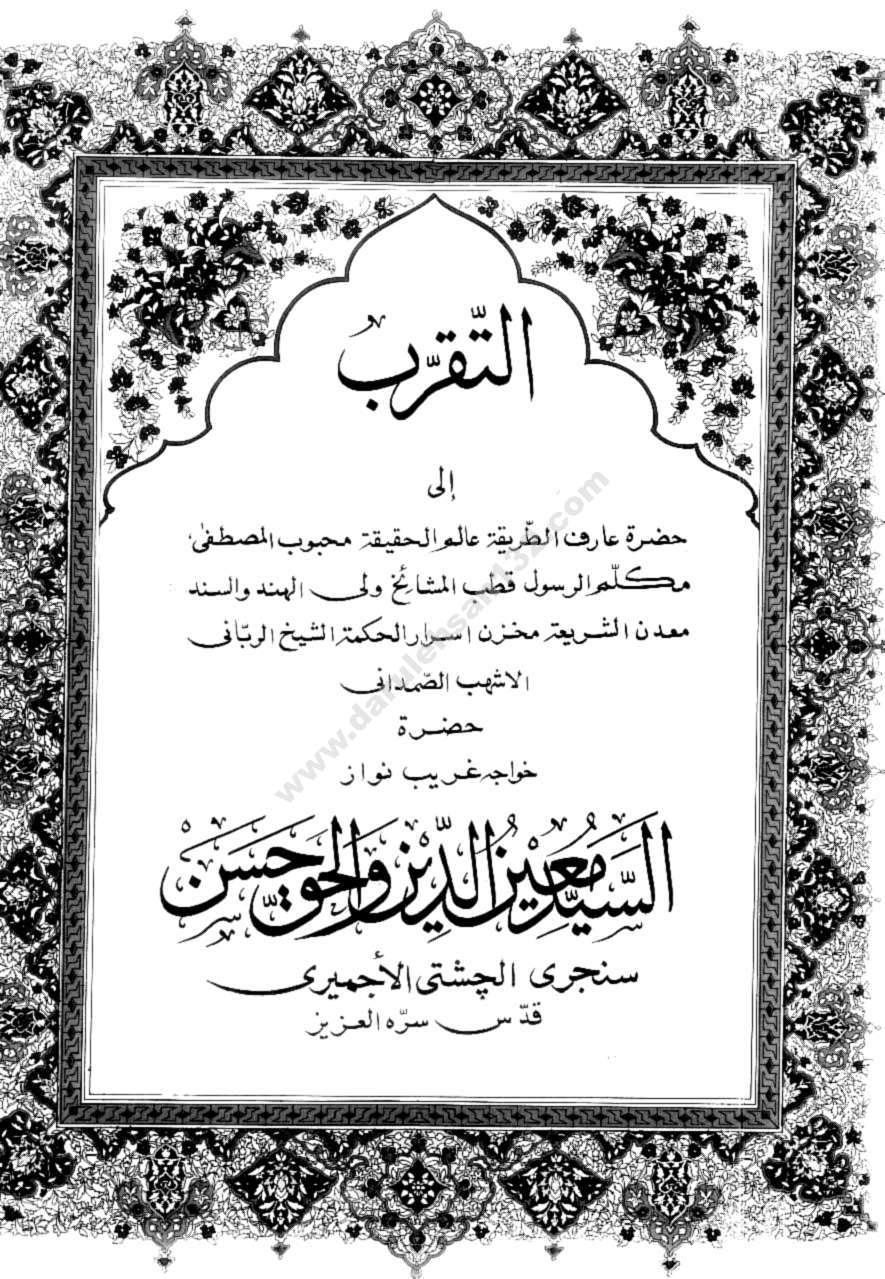 التّقرّب
إلى
حضرة عارف الطّريقة عالم الحقيقة محبوب المصطفیٰ
مكلّم الرسول قطب المشائخ ولی الهند والسند
معدن الشريعة مخزن اسرار الحكمة الشيخ الربّانی
الاشهب الصّمدانی
حضرة
خواجه غريب نواز
السَّيِّد مُعِينُ الدِّين وَالحَقّ حَسَن
سنجری الچشتی الأجمیری
قدّس سرّه العزيز
www.darulehsan132.com